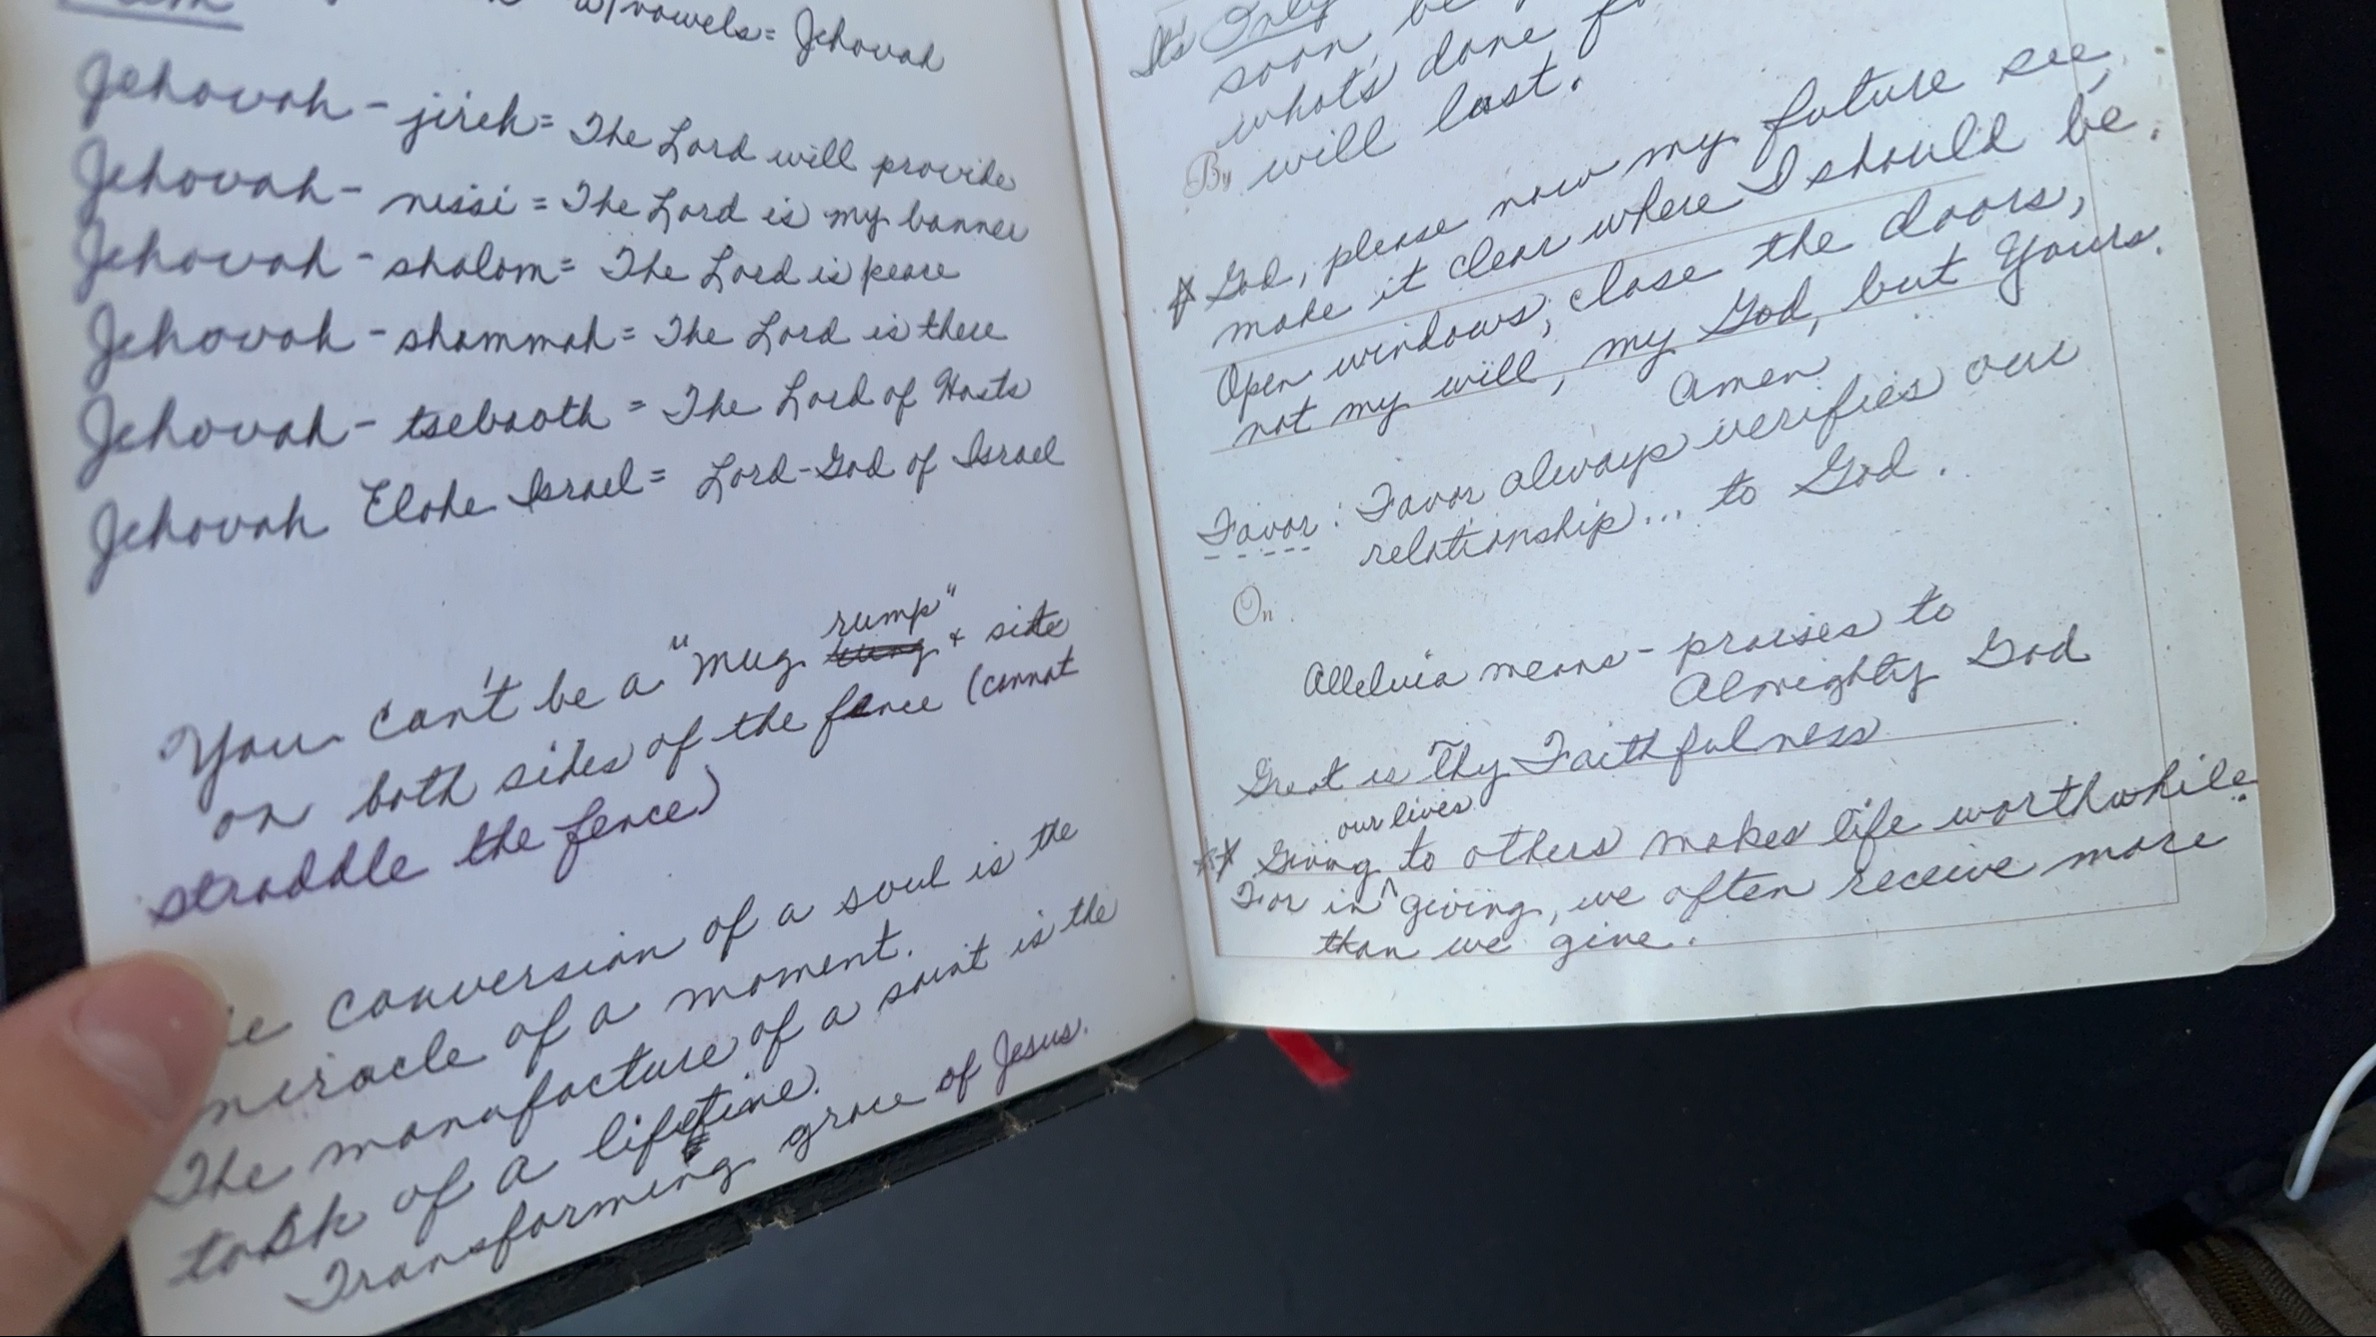 w/vowels = Jehovah
Jehovah - jireh = The Lord will provide
Jehovah - nissi = The Lord is my banner
Jehovah - shalom = The Lord is peace
Jehovah - shammah = The Lord is there
Jehovah - tsebaoth = The Lord of Hosts
Jehovah Elohe Israel = Lord-God of Israel
You can't be a "mug rump" & site
on both sides of the fence (cannot
straddle the fence)
conversion of a soul is the
miracle of a moment.
The manufacture of a saint is the
task of a lifetime.
Transforming grace of Jesus.
It's Only
soon be
what's done
will last.
By
☆ God, please now my future see,
make it clear where I should be.
Open windows, close the doors,
not my will, my God, but Yours.
Amen
Favor: Favor always verifies our
relationship... to God.
On
Alleluia means - praises to
Almighty God
Great is Thy Faithfulness
our lives
☆☆ Giving to others makes life worthwhile.
For in ^ giving, we often receive more
than we give.